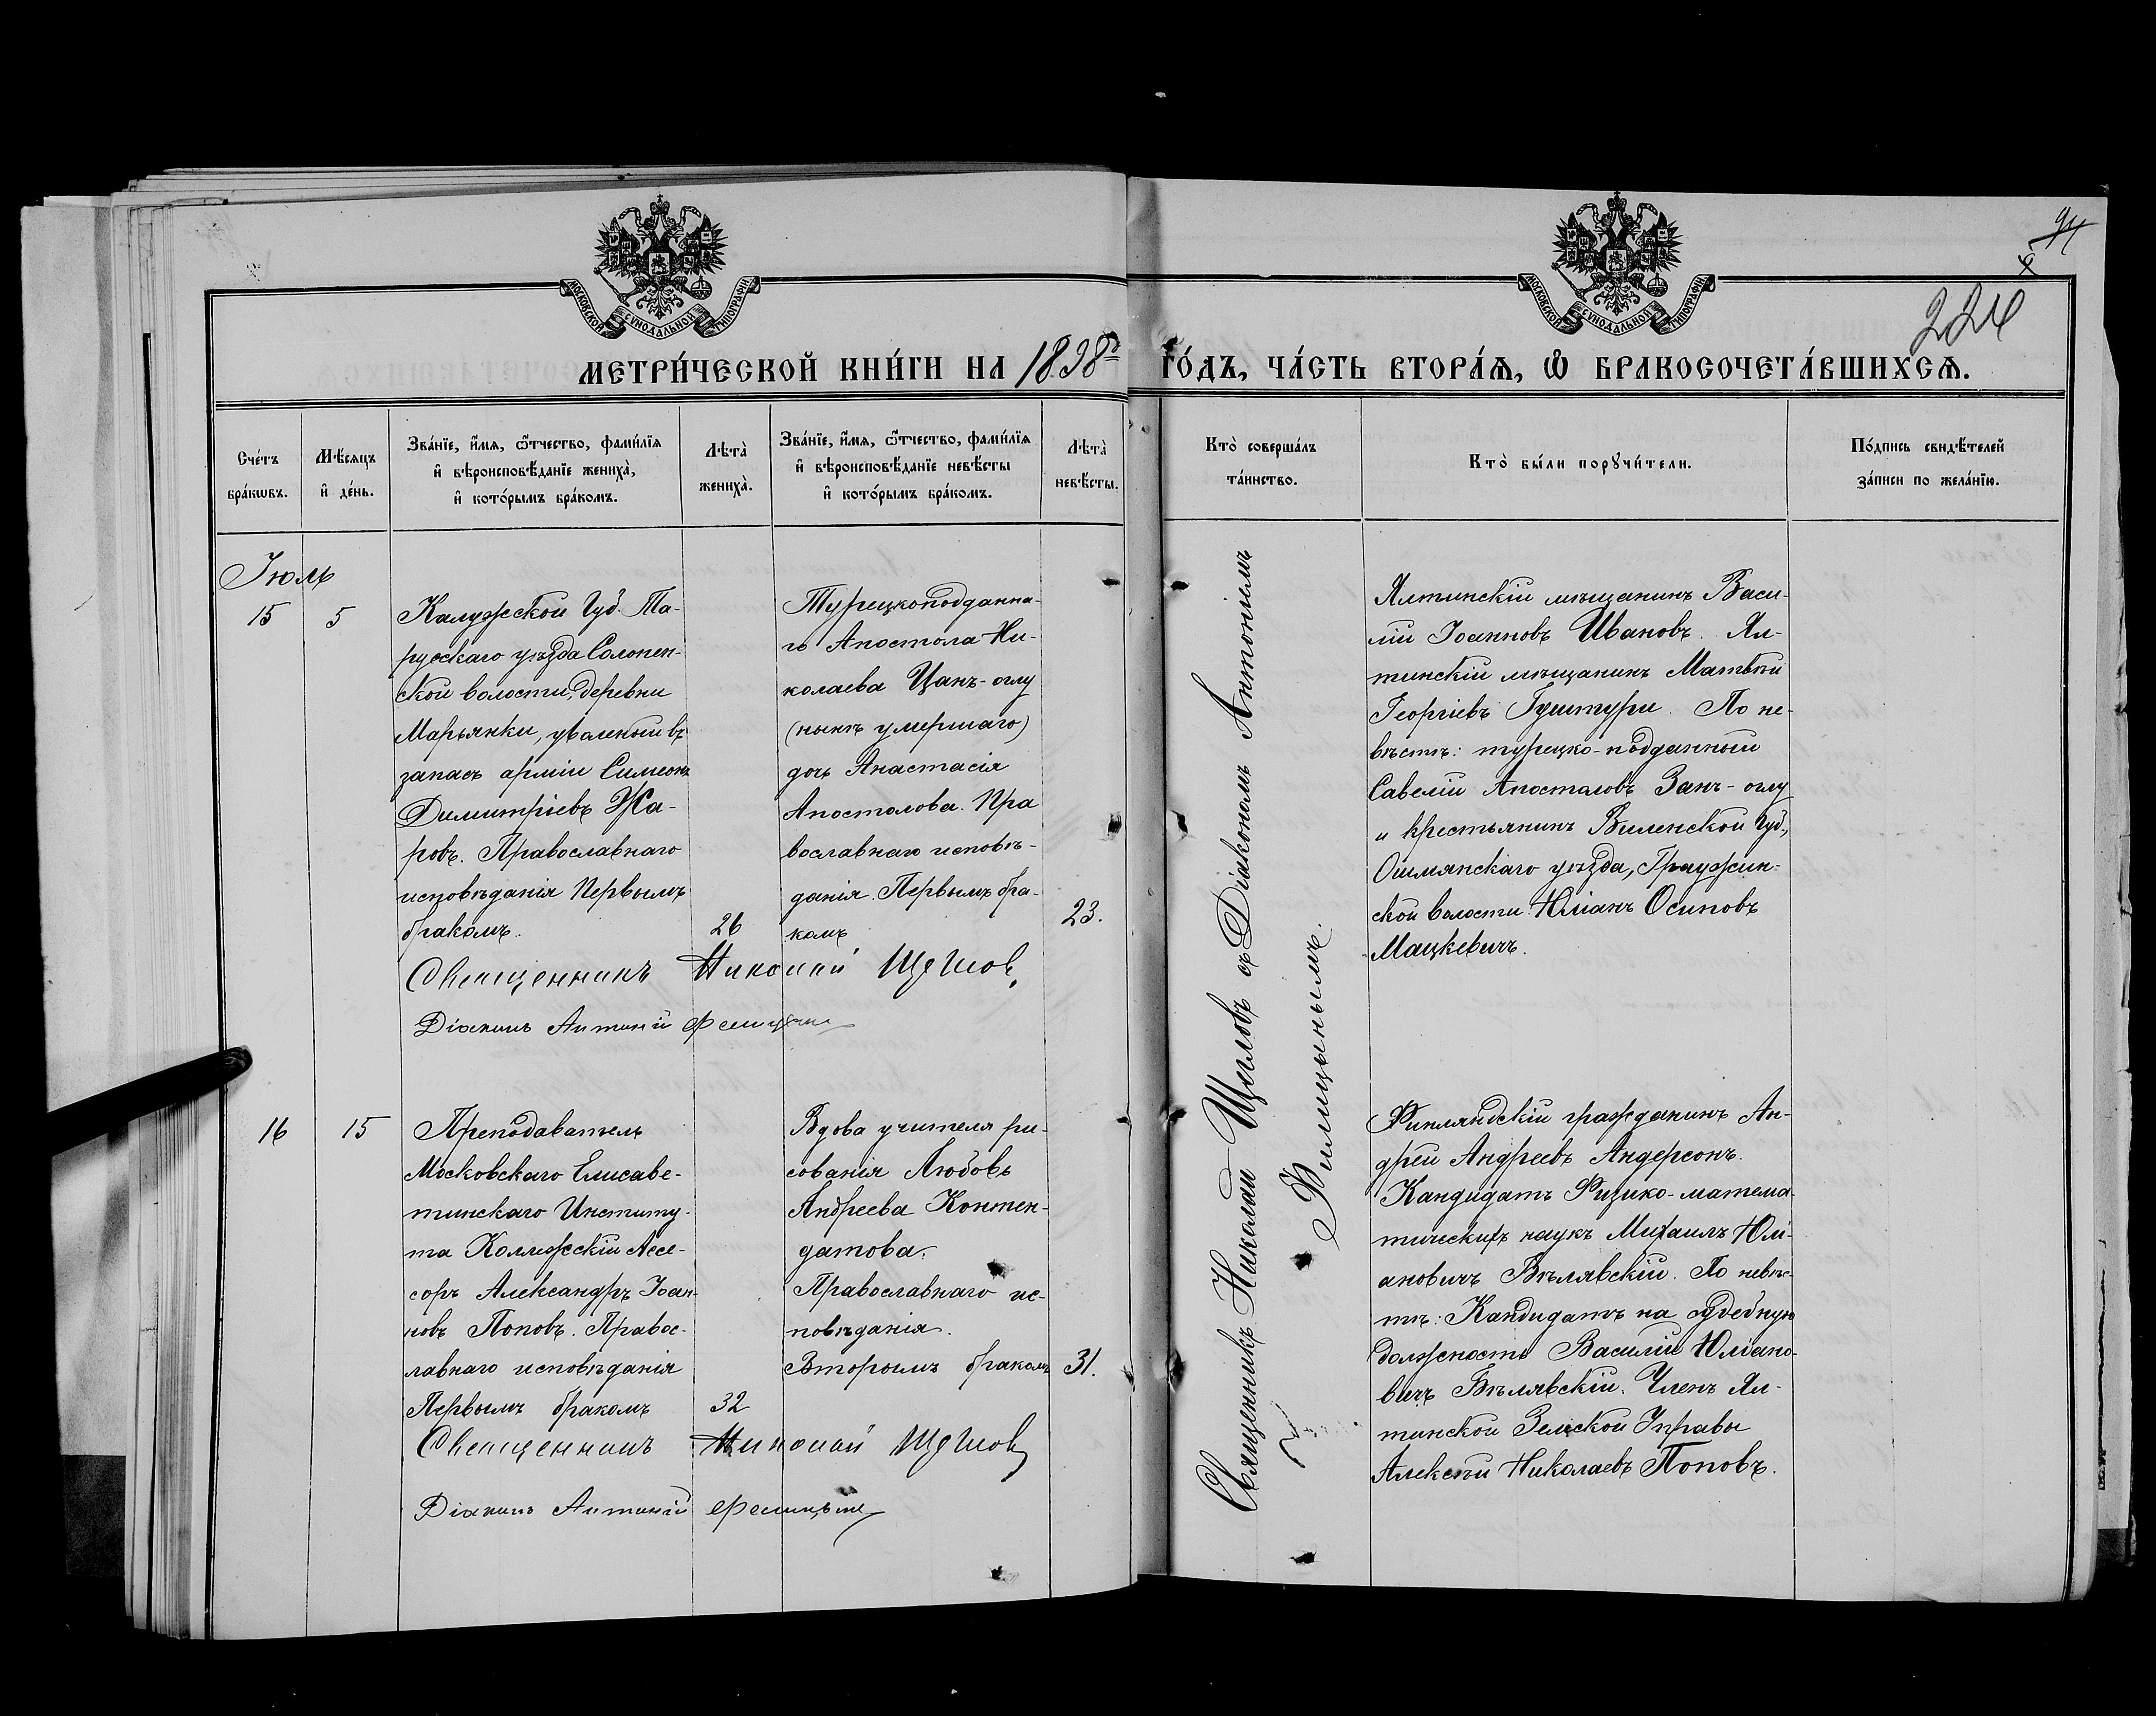 94
224
МОСКОВСКОЙ СУНОДАЛЬНОЙ ТИПОГРАФІИ
МОСКОВСКОЙ СУНОДАЛЬНОЙ ТИПОГРАФІИ
МЕТРИ́ЧЕСКОЙ КНИ́ГИ НА 1898й ГО́ДЪ, ЧА́СТЬ ВТОРА́Ѧ, Ѽ БРАКОСОЧЕТА́ВШИХСѦ.
Сче́тъ
бра́кѡвъ.
Мѣ́сяцъ
и҆ де́нь.
Зва́нїе, и҆́мѧ, ѻ҆́тчество, фами́лїѧ
и҆ вѣроисповѣ́данїе жениха̀,
и҆ кото́рымъ бра́комъ.
Лѣта̀
жениха̀.
Зва́нїе, и҆́мѧ, ѻ҆́тчество, фами́лїѧ
и҆ вѣроисповѣ́данїе невѣ́сты
и҆ кото́рымъ бра́комъ.
Лѣта̀
невѣ́сты.
Кто̀ соверша́лъ
та́инство.
Кто̀ бы́ли порꙋчи́тели.
По́дпись свидѣ́телей
за́писи по жела́нїю.
Іюль
15
5
Калужской Губ. Та-
русскаго уѣзда Солопен-
ской волости, деревни
Марьянки, уволеный въ
запасъ арміи Симеонъ
Димитріевъ Жа-
ровъ. Православнаго
исповѣданія Первымъ
бракомъ.
26
Турецкоподданна-
го Апостола Ни-
колаева Цанъ-оглу
(нынѣ умершаго)
дочь Анастасія
Апостолова. Пра
вославнаго исповѣ-
данія. Первымъ бра-
комъ
23.
Священникъ Николай Щегловъ
Діаконъ Антоній Филицынъ
Священникъ Николай Щегловъ съ Діакономъ Антоніемъ
Филицынымъ.
Ялтинскій мѣщанинъ Васи-
лій Іоанновъ Ивановъ. Ял-
тинскій мѣщанинъ Матвѣй
Георгіевъ Гуштури. По не-
вѣстѣ: турецко-подданный
Савелій Апостоловъ Занъ-оглу
и крестьянинъ Виленской Губ.,
Ошмянскаго уѣзда, Граужин-
ской волости Юліанъ Осиповъ
Мацкевичъ.
16
15
Преподаватель
Московскаго Елисаве-
тинскаго Институ-
та Коллежскій Асес-
соръ Александръ Іоан-
новъ Поповъ. Правос-
лавнаго исповѣданія
Первымъ бракомъ
32
Вдова учителя ри-
сованія Любовь
Андреева Контен-
датова.
Православнаго ис-
повѣданія.
Вторымъ бракомъ
31.
Священникъ Николай Щегловъ
Діаконъ Антоній Филицынъ
Финляндскій гражданинъ Ан-
дрей Андреевъ Андерсонъ.
Кандидатъ Физико-матема-
тическихъ наукъ Михаилъ Юлі-
ановичъ Бѣлявскій. По невѣс-
тѣ: Кандидатъ на судебную
должность Василій Юліано-
вичъ Бѣлявскій. Членъ Ял-
тинской Земской Управы
Алексѣй Николаевъ Поповъ.